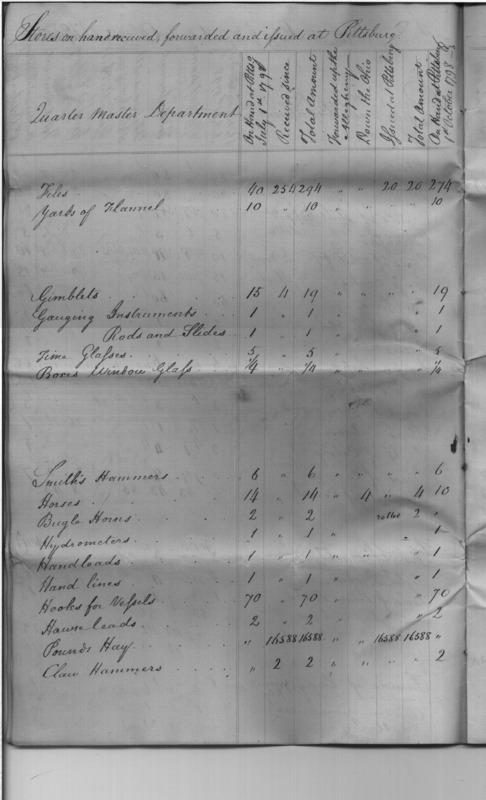 Stores on hand received, forwarded and issued at Pittsburg
Quarter Master Department On Hand at Pittsg July 1st 1798 Received since Total Amount Forwarded up the Allegheny Down the Ohio Issued at Pittsburg Total Amount On Hand at Pittsburg 1st October 1798
Files 40 254 294 " " 20 20 274
Yards of Flannel 10 " 10 10
Gimblets 15 4 19 " " " " 19
Gauging Instruments 1 " 1 " " 1
Rods and Slides 1 " 1 " 1
Time Glasses 5 " 5 " " 5
Boxes Window Glass 1/4 " 1/4 " " 1/4
Smith's Hammers 6 " 6 " " " " 6
Horses 14 " 14 " 4 " 4 10
Bugle Horns 2 " 2 " 2 "
Hydrometers 1 " 1 " 1
Handleads 1 " 1 " " " 1
Hand lines 1 " 1 " " 1
Hooks for Vessels 70 " 70 " " 70
Hawn leads 2 " 2 " " 2
Pounds Hay " 16588 16588 " " 16588 16588 "
Claw Hammers " 2 2 " " " " 2